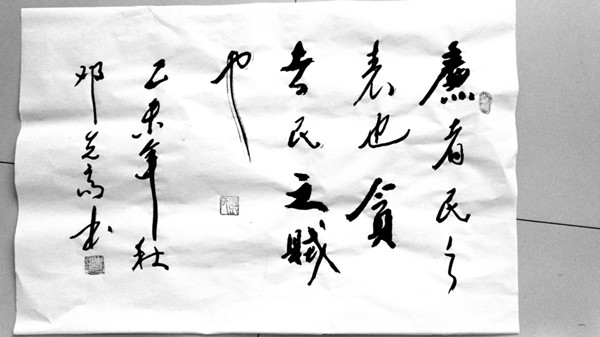 廉者民之
表也贪
者民之贼
也
乙未年秋
邓先高书